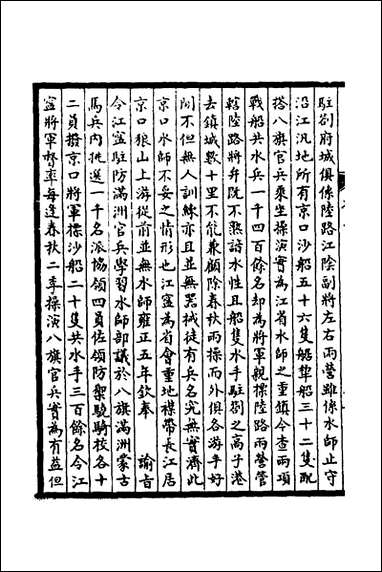 駐劄府城俱係陸路江陰副將左右兩營雖係水師止守
沿江汛地所有京口沙船五十六隻艍犁船三十二隻配
搭八旗官兵乘坐操演實為江省水師之重鎮今查兩項
戰船共水兵一千四百餘名却為將軍親標陸路兩營管
轄陸路將弁既不熟諳水性且船隻水手駐劄之高子港
去鎮城數十里不能兼顧除春秋兩操而外俱各游手好
閒不但無人訓練亦且並無器械徒有兵名究無實濟此
京口水師不妥之情形也江寧為省會重地襟帶長江居
京口狼山上游從前並無水師雍正五年欽奉　諭旨
令江寧駐防滿洲官兵學習水師部議於八旗滿洲蒙古
馬兵内挑選一千名派協領四員佐領防禦驍騎校各十
二員撥京口將軍標沙船二十隻共水手三百餘名令江
寧將軍督率每逢春秋二季操演八旗官兵實為有益但